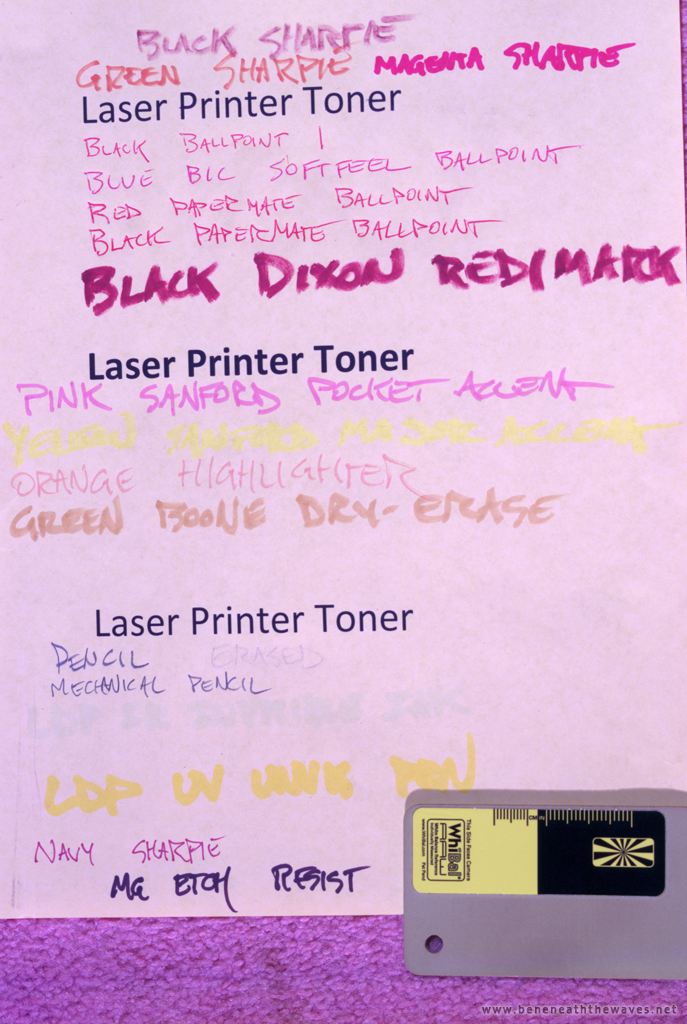 BLACK SHARPIE
GREEN SHARPIE MAGENTA SHARPIE
Laser Printer Toner
BLACK BALLPOINT 1
BLUE BIC SOFTFEEL BALLPOINT
RED PAPERMATE BALLPOINT
BLACK PAPERMATE BALLPOINT
BLACK DIXON REDIMARK
Laser Printer Toner
PINK SANFORD POCKET ACCENT
YELLOW SANFORD MAJOR ACCENT
ORANGE HIGHLIGHTER
GREEN BOONE DRY-ERASE
Laser Printer Toner
PENCIL ERASED
MECHANICAL PENCIL
LDP IR INVISIBLE INK
LDP UV PEN
NAVY SHARPIE
MG ETCH RESIST
This Side Faces Camera
WhiBal
RAW
White Balance Reference
www.WhiBal.com Pat Pend
CM IN
www.beneneaththewaves.net